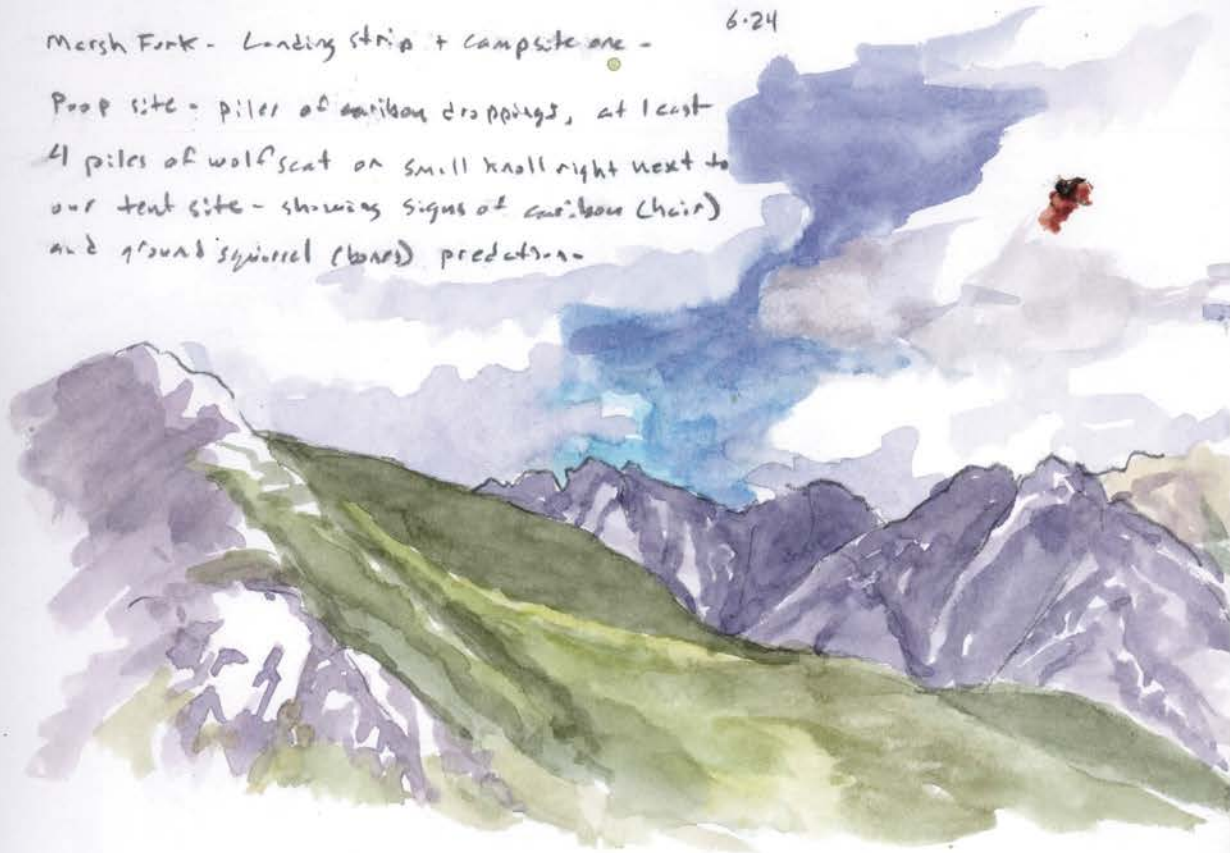 6.24
Marsh Fork - Landing strip + campsite one -
Poop site - piles of caribou droppings, at least
4 piles of wolf scat on small knoll right next to
our tent site - showing signs of caribou (hair)
and ground squirrel (bones) predation -